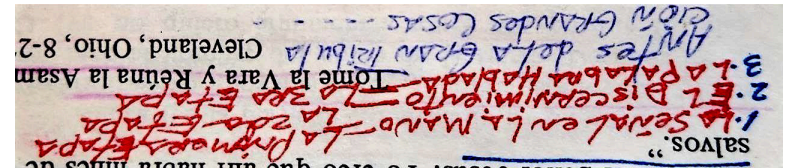 Yo creo que ahí habrá miles de
salvos.”
1. LA SEÑAL EN LA MANO — LA PRIMERA ETAPA
2. EL DISCERNIMIENTO — LA 2DA ETAPA
3. LA PALABRA HABLADA — LA 3RA ETAPA
Tome la Vara y Reúna la Asam
ANTES DE LA GRAN TRIBULA
Cleveland, Ohio, 8-2
CIÓN GRANDES COSAS - - - -